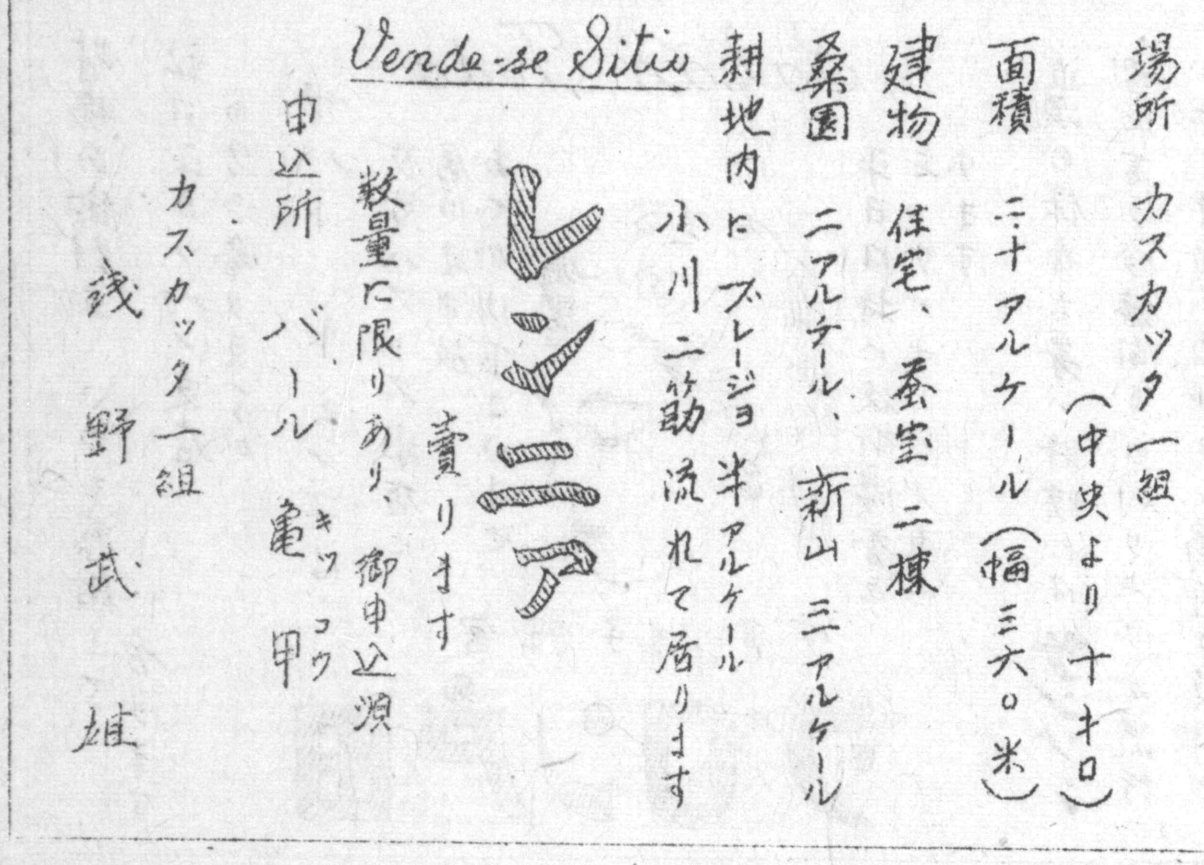 場所 カスカッタ一組
(中央より十キロ)
面積 二十アルケール(幅三六〇米)
建物 住宅、蚕室二棟
桑園 二アルケール 新山 三アルケール
耕地内に ブレージョ 半アルケール
小川二筋 流れて居ります
Vende-se Sitio
レンニア
賣ります
数量に限りあり、御申込順
申込所 バール 亀甲
キッコウ
カスカッタ一組
銭野武雄